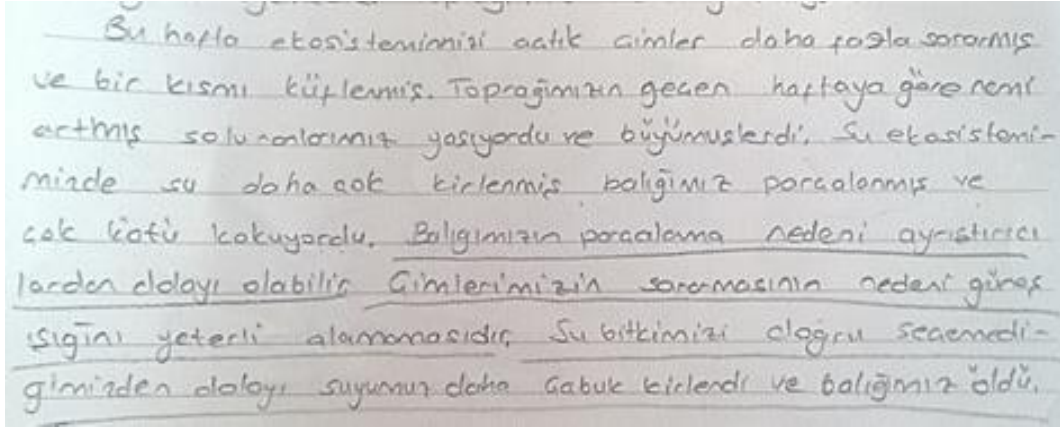 Bu hafta ekosistemimizi açtık çimler daha fazla sararmış
ve bir kısmı küflenmiş. Toprağımızın geçen haftaya göre nemi
artmış solucanlarımız yaşıyordu ve büyümüşlerdi. Su ekosistemi-
mizde su daha çok kirlenmiş balığımız parçalanmış ve
çok kötü kokuyordu. Balığımızın parçalama nedeni ayrıştırıcı
lardan dolayı olabilir Çimlerimizin sararmasının nedeni güneş
ışığını yeterli alamamasıdır. Su bitkimizi doğru seçemedi-
ğimizden dolayı suyumuz daha çabuk kirlendi ve balığımız öldü.